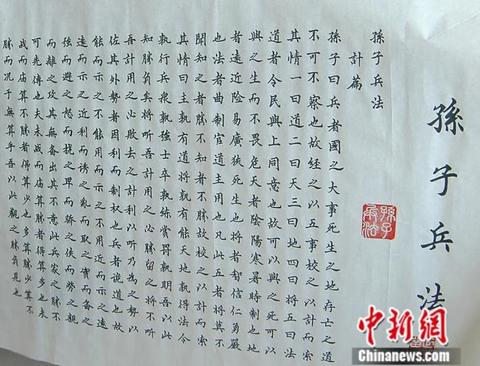 孫子兵法
孫子兵法
孫子兵法
計篇
孫子曰兵者國之大事死生之地存亡之道
不可不察也故經之以五事校之以計而索
其情一曰道二曰天三曰地四曰將五曰法
道者令民與上同意也故可以與之死可以
與之生而不畏危天者陰陽寒暑時制也地
者遠近險易廣狹死生也將者智信仁勇嚴
也法者曲制官道主用也凡此五者將莫不
聞知之者勝不知者不勝故校之以計而索
其情曰主執有道將執有能天地執得法令
執行兵眾執強士卒執練賞罰執明吾以此
知勝負矣將听吾計用之必勝留之將不听
吾計用之必敗去之計利以听乃為之勢以
佐其外勢者因利而制權也兵者詭道也故
能而示之不能用而示之不用近而示之遠
遠而示之近利而誘之亂而取之實而備之
強而避之怒而撓之卑而驕之佚而勞之親
而離之攻其無備出其不意此兵家之勝不
可先傳也夫未战而庙算勝者得算多也未
战而庙算不勝者得算少也多算勝少算不
勝而况于無算乎吾以此觀之勝負見也
中新网
Chinanews.com